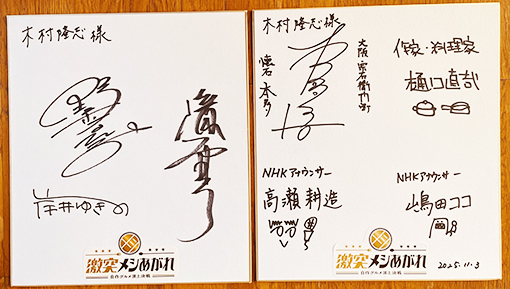 木村隆志様
岸井ゆきの
激突メシあがれ
自作グルメ頂上決戦
木村隆志様
懐石
大阪 宗右衛門町
作家・料理家
樋口直哉
NHKアナウンサー
高瀬耕造
NHKアナウンサー
嶋田ココ
激突メシあがれ
自作グルメ頂上決戦
2025.11.3